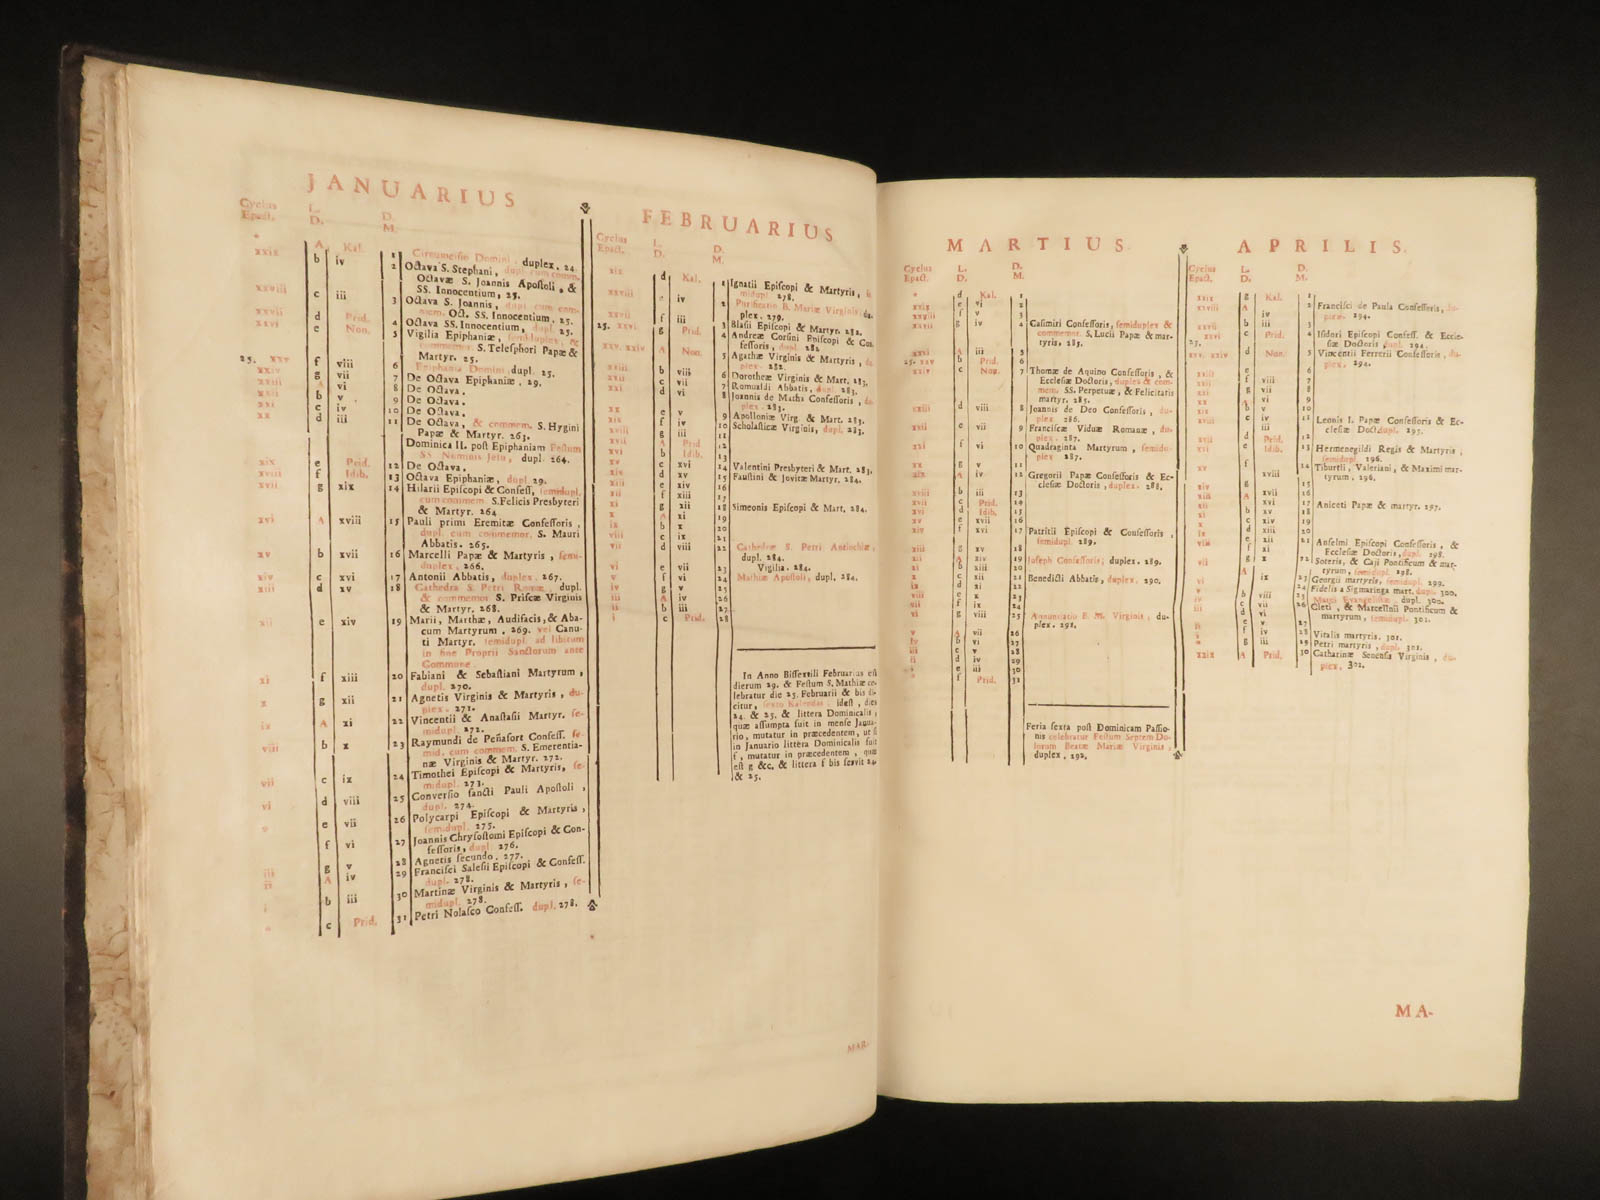 JANUARIUS
Cyclus Epact. L. D. D. M.
* A Kal. 1 Circumcisio Domini, duplex. 24.
xxix b iv 2 Octava S. Stephani, dupl. cum comm.
Octavæ S. Joannis Apostoli, &
SS. Innocentium, 25.
xxviii c iii 3 Octava S. Joannis, dupl. cum com-
mem. Oct. SS. Innocentium, 25.
xxvii d Prid. 4 Octava SS. Innocentium, dupl. 25.
xxvi e Non. 5 Vigilia Epiphaniæ, semiduplex, &
commemor. S. Telesphori Papæ &
Martyr. 25.
25. xxv f viii 6 Epiphania Domini, dupl. 25.
xxiv g vii 7 De Octava Epiphaniæ, 29.
xxiii A vi 8 De Octava.
xxii b v 9 De Octava.
xxi c iv 10 De Octava.
xx d iii 11 De Octava, & commem. S. Hygini
Papæ & Martyr. 263.
Dominica II. post Epiphaniam Festum
SS. Nominis Jesu, dupl. 264.
xix e Prid. 12 De Octava.
xviii f Idib. 13 Octava Epiphaniæ, dupl. 29.
xvii g xix 14 Hilarii Episcopi & Confess, semidupl.
cum commem. S. Felicis Presbyteri
& Martyr. 264
xvi A xviii 15 Pauli primi Eremitæ Confessoris,
dupl. cum commemor. S. Mauri
Abbatis. 265.
xv b xvii 16 Marcelli Papæ & Martyris, semi-
duplex, 266.
xiv c xvi 17 Antonii Abbatis, duplex. 267.
xiii d xv 18 Cathedra S. Petri Romæ, dupl.
& commemor S. Priscæ Virginis
& Martyr. 268.
xii e xiv 19 Marii, Marthæ, Audifacis, & Aba-
cum Martyrum. 269. vel Canu-
ti Martyr. semidupl. ad libitum
in fine Proprii Sanctorum ante
Commune.
xi f xiii 20 Fabiani & Sebastiani Martyrum,
dupl. 270.
x g xii 21 Agnetis Virginis & Martyris, du-
plex. 271.
ix A xi 22 Vincentii & Anastasii Martyr. se-
midupl. 272.
viii b x 23 Raymundi de Peñafort Confess. se-
mid. cum commem. S. Emerentia-
næ Virginis & Martyr. 272.
vii c ix 24 Timothei Episcopi & Martyris, se-
midupl. 273.
vi d viii 25 Conversio sancti Pauli Apostoli,
dupl. 274.
v e vii 26 Polycarpi Episcopi & Martyris,
semidupl. 275.
f vi 27 Joannis Chrysostomi Episcopi & Con-
fessoris, dupl. 276.
iii g v 28 Agnetis secundo. 277.
ii A iv 29 Francisci Salesii Episcopi & Confess.
dupl. 278.
i b iii 30 Martinæ Virginis & Martyris, se-
midupl. 278.
* c Prid. 31 Petri Nolasco Confess. dupl. 278.
FEBRUARIUS
Cyclus Epact. L. D. D. M.
xix d Kal. 1 Ignatii Episcopi & Martyris,
midupl. 278.
xxviii e iv 2 Purificatio B. Mariæ Virginis, du-
plex. 279.
xxvii f iii 3 Blasii Episcopi & Martyr. 282.
25. xxvi g Prid. 4 Andreæ Corsini Episcopi & Con-
fessoris, dupl. 282
xxv. xxiv A Non. 5 Agathæ Virginis & Martyris, du-
plex. 282.
xxiii b viii 6 Dorotheæ Virginis & Mart. 283.
xxii c vii 7 Romualdi Abbatis, dupl. 283.
xxi d vi 8 Joannis de Matha Confessoris, du-
plex. 283.
xx e v 9 Apolloniæ Virg. & Mart. 283.
xix f iv 10 Scholasticæ Virginis, dupl. 283.
xviii g iii 11
xvii A Prid 12
xvi b Idib. 13
xv c xvi 14 Valentini Presbyteri & Mart. 283.
xiv d xv 15 Faustini & Jovitæ Martyr. 284.
xiii e xiv 16
xii f xiii 17
xi g xii 18 Simeonis Episcopi & Mart. 284.
x A xi 19
ix b x 20
viii c ix 21
vii d viii 22 Cathedræ S. Petri Antiochiæ,
dupl. 284.
vi e vii 23 Vigilia. 284.
v f vi 24 Mathiæ Apostoli, dupl. 284.
iv g v 25
iii A iv 26
ii b iii 27
i c Prid 28
In Anno Bissextili Februarius est
dierum 29. & Festum S. Mathiæ ce-
lebratur die 25. Februarii & bis di-
citur, sexto Kalendas. idest, dies
24. & 25. & littera Dominicalis,
quæ assumpta fuit in mense Janua-
rio, mutatur in præcedentem, ut si
in Januario littera Dominicalis fuit
f, mutatur in præcedentem, quæ
est g &c, & littera f bis servit 24
& 25.
MAR-
MARTIUS.
Cyclus Epact. L. D. D. M.
* d Kal. 1
xxix e vi 2
xxviii f v 3
xxvii g iv 4 Casimiri Confessoris, semiduplex &
commemor. S. Lucii Papæ & mar-
tyris, 285.
xxvi A iii 5
25. xxv b Prid. 6
xxiv c Non. 7 Thomæ de Aquino Confessoris, &
Ecclesiæ Doctoris, duplex & com-
mem. SS. Perpetuæ, & Felicitatis
martyr. 285.
xxiii d viii 8 Joannis de Deo Confessoris, du-
plex 286.
xxii e vii 9 Franciscæ Viduæ Romanæ, du-
plex. 287.
xxi f vi 10 Quadraginta Martyrum, semidu-
plex 287.
xx g v 11
xix A iv 12 Gregorii Papæ Confessoris & Ec-
clesiæ Doctoris, duplex. 288.
xviii b iii 13
xvii c Prid. 14
xvi d Idib. 15
xv e xvii 16
xiv f xvi 17 Patritii Episcopi & Confessoris,
semidupl. 289.
xiii g xv 18
xii A xiv 19 Joseph Confessoris; duplex. 289.
xi b xiii 20
x c xii 21 Benedicti Abbatis, duplex. 290.
ix d xi 22
viii e x 23
vii f ix 24
vi g viii 25 Annunciatio B. M. Virginis, du-
plex. 291.
v A vii 26
iv b vi 27
iii c v 28
ii d iv 29
i e iii 30
* f Prid. 31
Feria sexta post Dominicam Passio-
nis celebratur Festum Septem Do-
lorum Beatæ Mariæ Virginis,
duplex, 292,
APRILIS.
Cyclus Epact. L. D. D. M.
xxix g Kal. 1
xxviii A iv 2 Francisci de Paula Confessoris, du-
plex. 294.
xxvii b iii 3
25. xxvi c Prid. 4 Isidori Episcopi Confess. & Eccle-
siæ Doctoris, dupl. 294.
xxv. xxiv d Non. 5 Vincentii Ferrerii Confessoris, du-
plex. 294.
xxiii e 6
xxii f viii 7
xxi g vii 8
xx A vi 9
xix b v 10
xviii c iv 11 Leonis I. Papæ Confessoris & Ec-
clesiæ Doct. dupl. 295.
iii
xvii e Prid. 12
xvi e Idib. 13 Hermenegildi Regis & Martyris,
semidupl. 296.
xv f 14 Tiburtii, Valeriani, & Maximi mar-
tyrum, 296.
xviii
xiv g 15
xiii A xvii 16
xii b xvi 17 Aniceti Papæ & martyr. 297.
xi b xv 18
x c xiv 19
ix d xiii 20
viii e xii 21 Anselmi Episcopi Confessoris, &
Ecclesiæ Doctoris, dupl. 298.
f xi
vii g x 22 Soteris, & Caji Pontificum & mar-
tyrum, semidupl. 298.
vi A ix 23 Georgii martyris, semidupl. 299.
v b viii 24 Fidelis a Sigmaringa mart. dupl. 300.
iv c vii 25 Marci Evangelistæ, dupl. 300.
iii d vi 26 Cleti, & Marcellini Pontificum &
martyrum, semidupl. 301.
ii e v 27
i f iv 28 Vitalis martyris. 301.
* g iii 29 Petri martyris, dupl. 301.
xxix A Prid. 30 Catharinæ Senensis Virginis, du-
plex. 302.
MA-